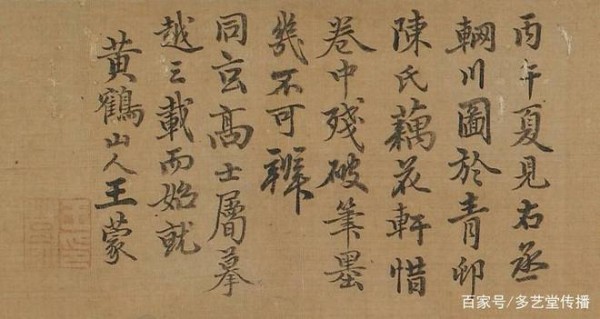 丙午夏見右丞
輞川圖於青卯
陳氏藕花軒惜
卷中殘破筆墨
幾不可辨
同玄高士屬摹
越三載而始就
黃鶴山人王蒙
百家号/多艺堂传播